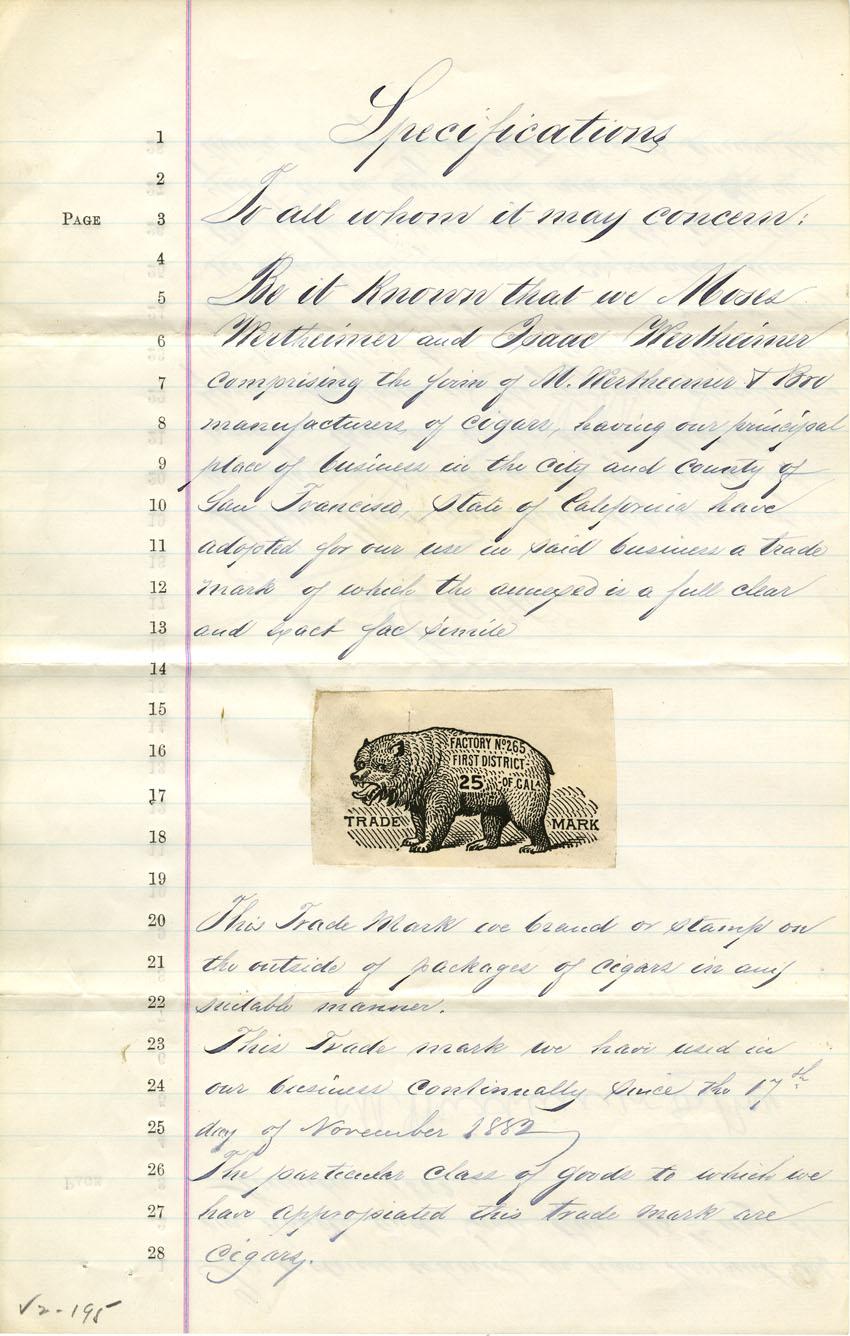 Specifications
1
2
PAGE 3 To all whom it may concern:
4
5 Be it Known that we Moses
6 Wertheimer and Isaac Wertheimer
7 comprising the firm of M. Wertheimer & Bro
8 manufacturers of cigars, having our principal
9 place of business in the city and county of
10 San Francisco, State of California have
11 adopted for our use in said business a trade
12 mark of which the annexed is a full clear
13 and exact fac simile
14
15
FACTORY Nº 265
16 FIRST DISTRICT
25 OF CAL
17
TRADE MARK
18
19
20 This Trade Mark we brand or stamp on
21 the outside of packages of cigars in any
22 suitable manner.
23 This Trade mark we have used in
24 our business continually since the 17th
25 day of November 1882
26 The particular class of goods to which we
27 have appropriated this trade mark are
28 Cigars.
V2-195